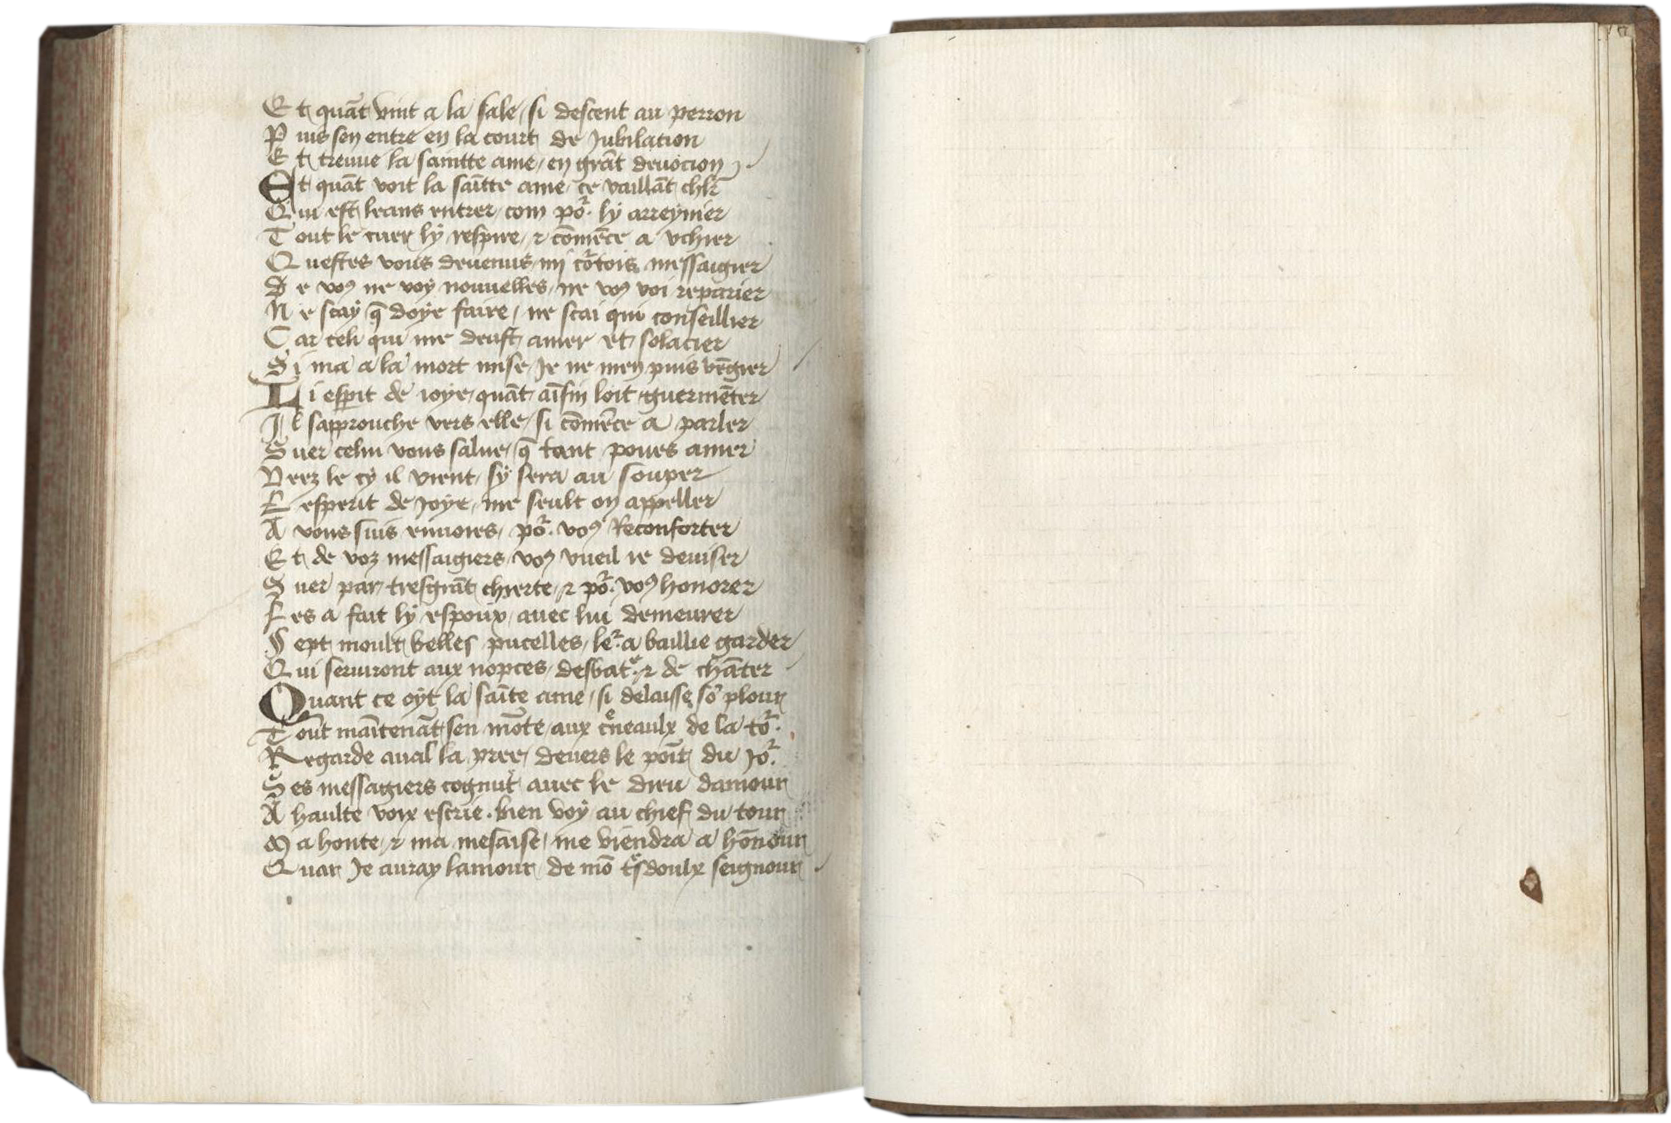 Et quāt vint a la sale / si descent au perron
Puis sen entre en la court de Jubilation
Et treuue la saintte ame / en grāt deuocion
Et quāt voit la saītte ame / ce vaillāt chlr̄
Qui est leans entrer / com por ly arreynier
Tout le cuer ly respire / ⁊ cōmēce a vchier
Questes vous deuenus / mi cortois messaigier
De voꝰ ne voy nouuelles / ne voꝰ voi reparier
Ne scay q̄ doye faire / ne scai qui conseillier
Car celi qui me deust amer et solacier
Si ma a la mort mise / Je ne men puis vēgier
Li esp̄it de ioye / quāt aīsin loit guermēter
Il sapprouche vers elle / si cōmēce a parler
Suer celui vous salue / q̄ tant poues amer
Veez le cy il vient / sy sera au souper
Lesperit de Joye / me seult on appeller
A vous suis enuoies / por voꝰ Reconforter
Et de voz messaigiers / voꝰ vueil ie deuiser
Suer par tresgrāt chierte / ⁊ por voꝰ honorer
Les a fait ly espoux / auec lui demeurer
Sept moult belles pucelles / ler a baillie garder
Qui seruiront aux nopces / desbatr̄e ⁊ de chāter
Quant ce oyt la saīte ame / si delaisse sō plour
Tout maītenāt sen mōte / aux cneaulx de la tor
Regarde aual la pree / deuers le poīt du Jor
Ses messagiers cognut auec le dieu damour
A haulte voix escrie . bien voy au chief du tour
Ma honte / ⁊ ma mesaise / me viendra a hōnour
Quar Je auray lamour / de mō tsdoulx seignour